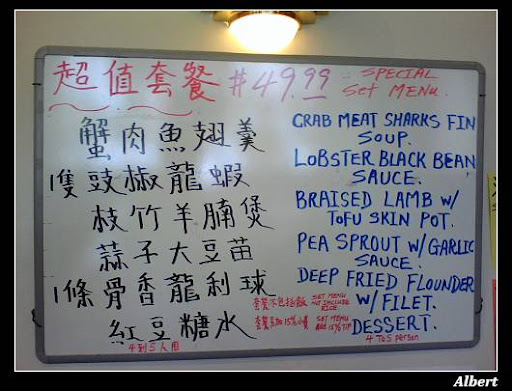 超值套餐 #49.99
SPECIAL
Set MENU.
蟹肉魚翅羹
CRAB MEAT SHARKS FIN
SOUP.
1隻豉椒龍蝦
LOBSTER BLACK BEAN
SAUCE.
枝竹羊腩煲
BRAISED LAMB W/
TOFU SKIN POT.
蒜子大豆苗
PEA SPROUT W/GARLIC
SAUCE.
1條骨香龍利球
DEEP FRIED FLOUNDER
W/ FILET.
套餐不包括飯
SET MENU
NOT INCLUDE
RICE
紅豆糖水
DESSERT.
15%小費
SET MENU
ADD 15% TIP
4到5人用
4 To 5 person
Albert